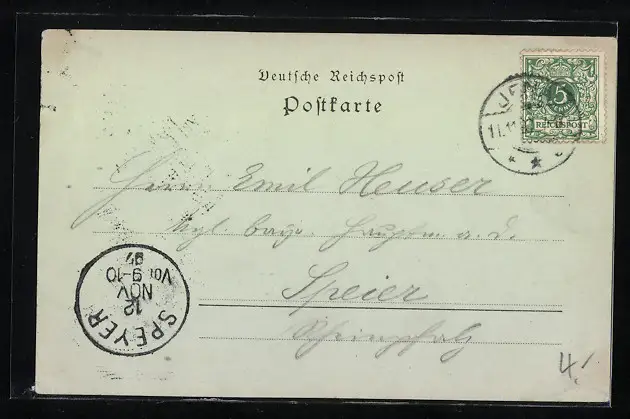 Deutsche Reichspost
Postkarte
5
REICHSPOST
11.11.
Herrn Emil Heuser
Kgl. bayr. Hauptm. a. D.
Speier
Rheinpfalz
SPEYER
12
NOV
Vor 9-10
97
4.